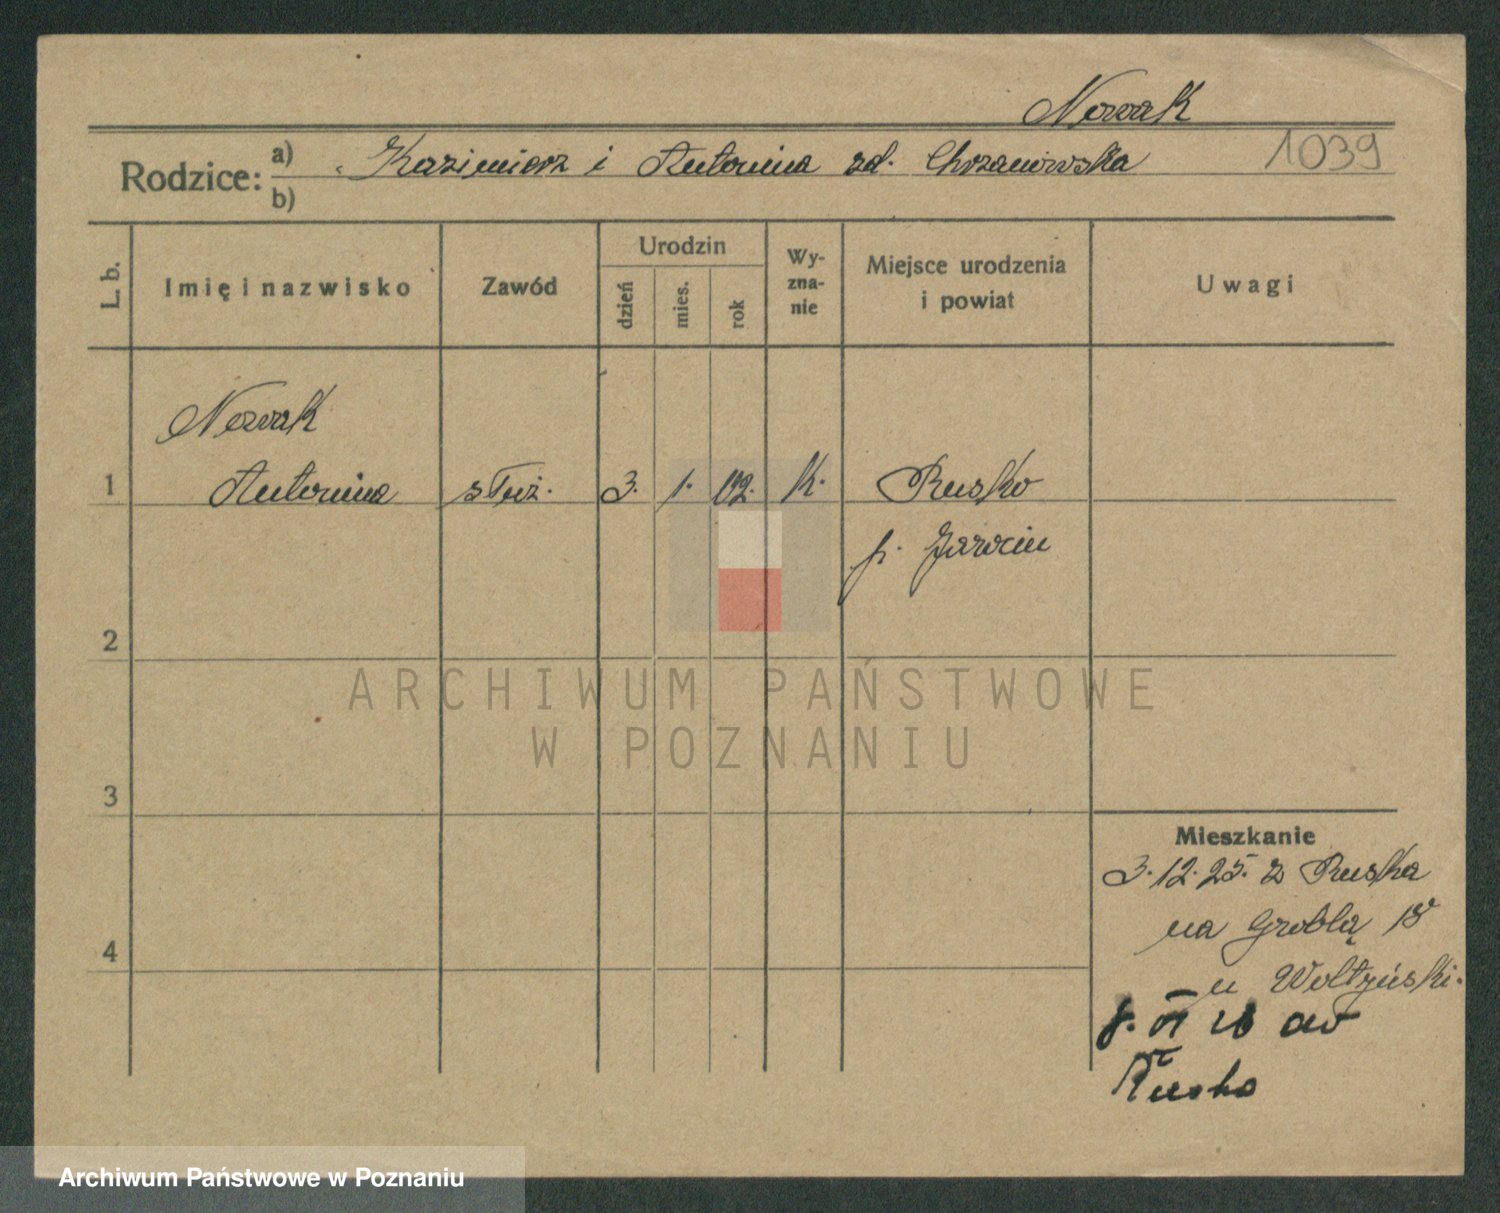 Nowak
Rodzice: a) Kazimierz i Antonina zd. Chrzanowska 1039
b)
L. b. Imię i nazwisko Zawód Urodzin dzień mies. rok Wy-zna-nie Miejsce urodzenia i powiat Uwagi
Nowak
1 Antonina służ. 3. 1. 02. k. Rusko
p. Jarocin
2
ARCHIWUM PAŃSTWOWE
W POZNANIU
3
Mieszkanie
3.12.25. z Ruska
na Groblą 18
4
u
8. VI 26 do
Ruska
Archiwum Państwowe w Poznaniu